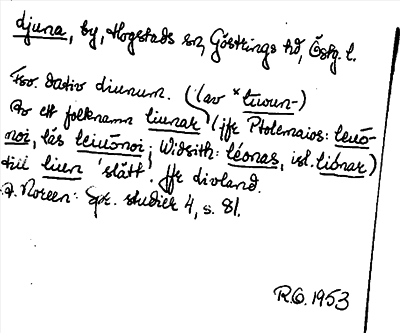 djuna, by, Hogstads sn, Göstrings hd, Östg. l.
Fsv. dativ diunum. (av *teuun-)
Av ett folknamn liunar (jfr Ptolemaios: leuō-
noi, läs leiuōnoi; Widsith: léonas, isl. liónar)
till liun 'slätt'. Jfr divland.
A. Noreen: Spr. studier 4, s. 81.
R.O. 1953